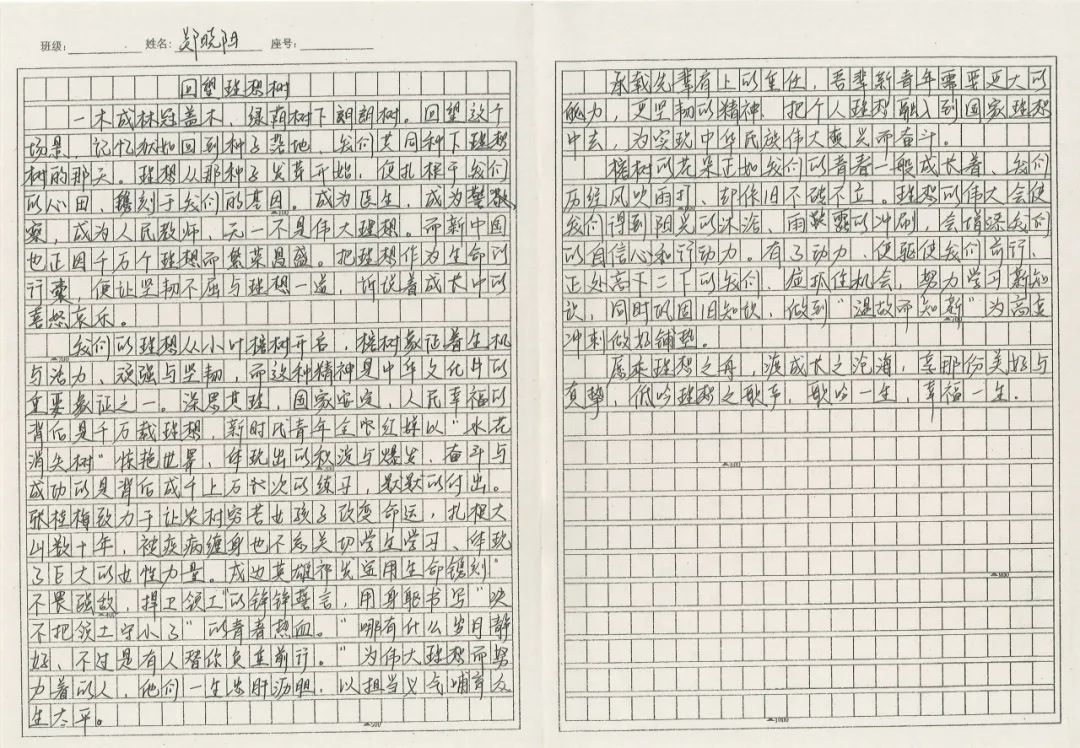 班级： 姓名：郑晓阳 座号：
回望理想树
一木成林冠盖木，绿荫树下朗朗树。回望这个
场景，记忆犹如回到种子落地、我们共同种下理想
树的那天。理想从那种子发芽开始，便扎根于我们
的心田，镌刻于我们的基因。成为医生，成为警
察，成为人民教师，无一不是伟大理想。而新中国
也正因千万个理想而繁荣昌盛。把理想作为生命的
行囊，便让坚韧不屈与理想一道，诉说着成长中的
喜怒哀乐。
我们的理想从小叶榕树开启，榕树象征着生机
与活力、顽强与坚韧，而这种精神是中华文化中的
重要象征之一。深思其理，国家安定，人民幸福的
背后是千万载理想，新时代青年全红婵以“水花
消失树”惊艳世界，体现出的积淀与爆发、奋斗与
成功的是背后成千上万次的练习，默默的付出。
张桂梅致力于让农村穷苦女孩子改变命运，扎根大
山数十年，被疾病缠身也不忘关切学生学习、体现
了巨大的女性力量。戍边英雄祁发宝用生命镌刻“
不畏强敌，捍卫领工”的铮铮誓言，用身躯书写“决
不把领土守小了”的青春热血。“哪有什么岁月静
好、不过是有人替你负重前行。”为伟大理想而努
力着的人，他们一生忠肝沥胆，以担当义气哺育众
生太平。
承载先辈肩上的重任，吾辈新青年需要更大的
能力，更坚韧的精神、把个人理想融入到国家理想
中去，为实现中华民族伟大复兴而奋斗。
榕树的花朵正如我们的青春一般成长着、我们
历经风吹雨打、却依旧不破不立。理想的伟大会使
我们得到阳光的沐浴、雨露的冲刷，会增添我们
的自信心和行动力。有了动力、便驱使我们前行、
正处高十二下的我们、应抓住机会，努力学习新知
识，同时巩固旧知识，做到“温故而知新”为高考
冲刺做好铺垫。
愿乘理想之舟，渡成长之沧海，享那份美好与
真挚，低吟理想之歌声，歌吟一生，幸福一生．